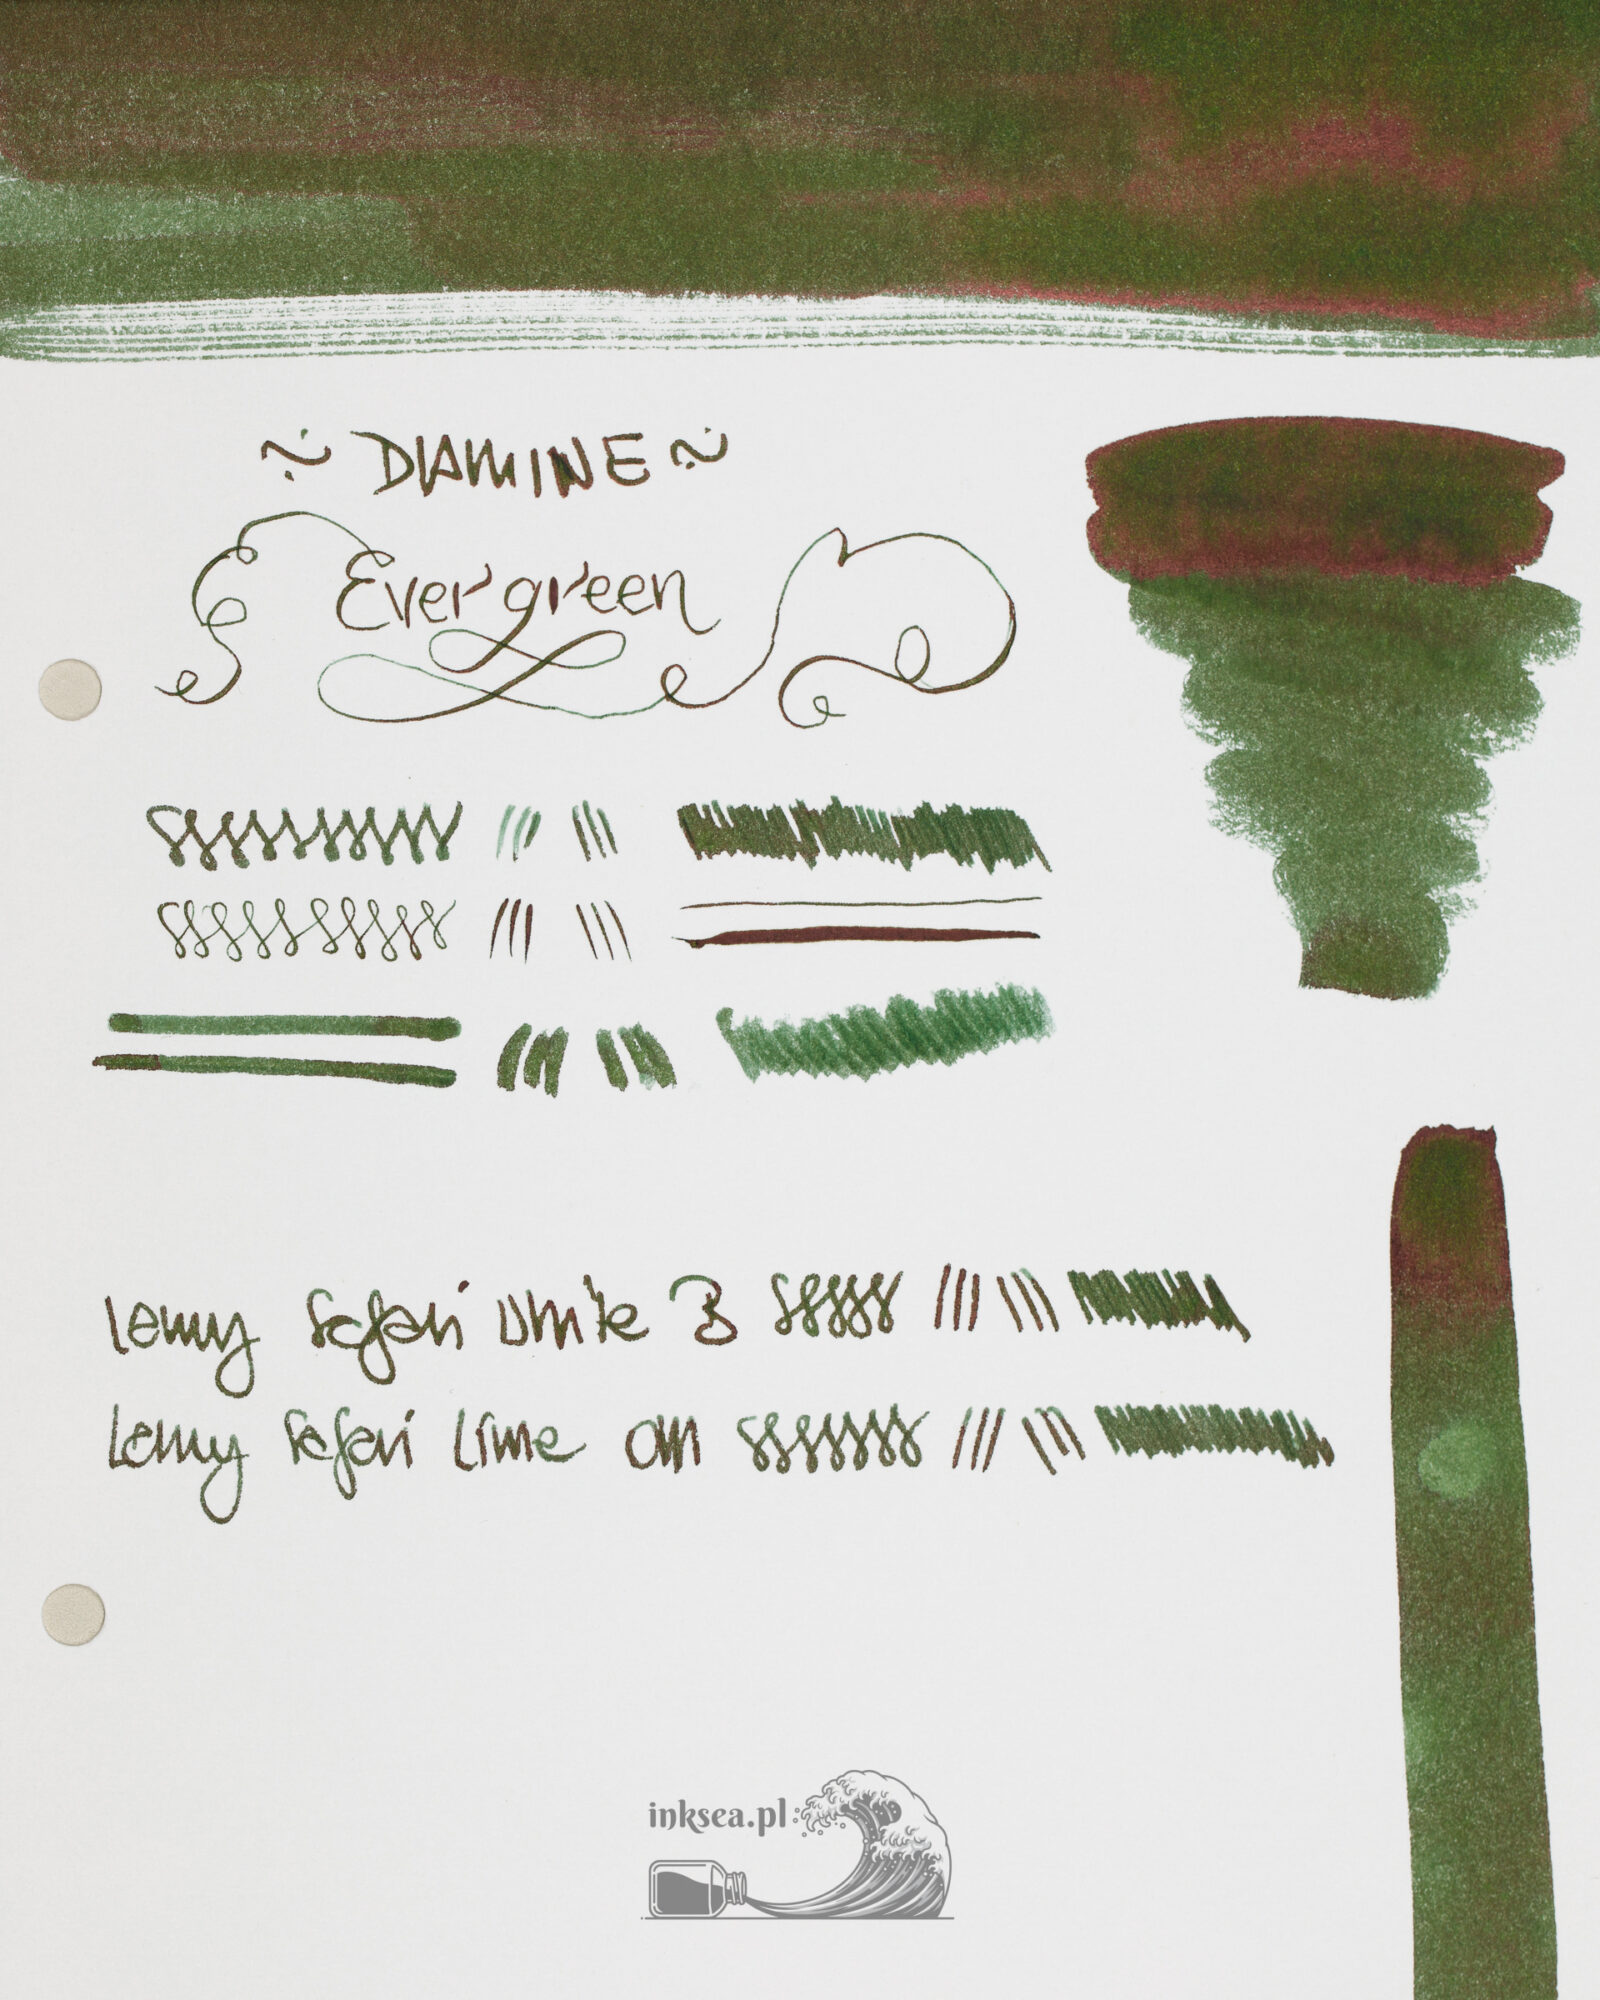 ~ DIAMINE ~
Evergreen
Lamy Safari White B
Lamy Safari Lime OM
inksea.pl